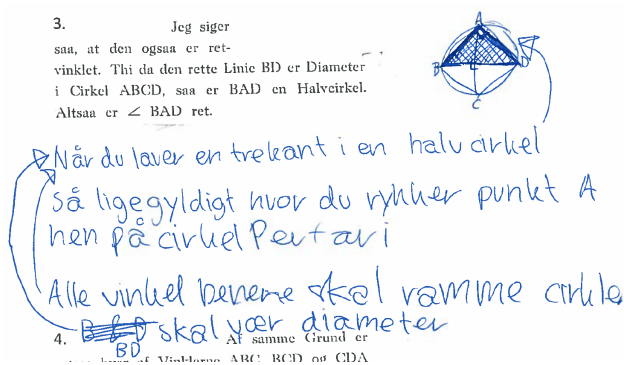 3. Jeg siger
saa, at den ogsaa er ret-
vinklet. Thi da den rette Linie BD er Diameter
i Cirkel ABCD, saa er BAD en Halvcirkel.
Altsaa er ∠ BAD ret.
A
B E D
C
Når du laver en trekant i en halv cirkel
så ligegyldigt hvor du rykker punkt A
hen på cirkel
Alle vinkel benene skal ramme
skal vær diameter
BD
4. Af samme Grund er
af Vinklerne ABC, BCD og CDA